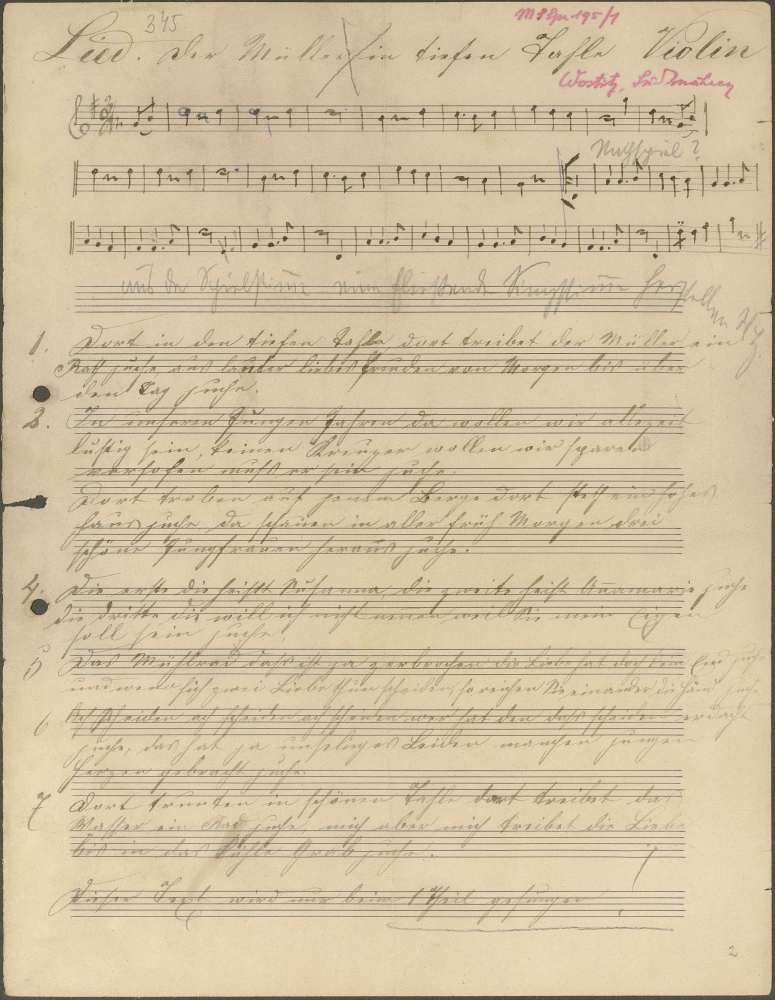 345
Lied. Der Müller in tiefen Tahle Violin
Wostitz, Südmähren
Nachspiel?
aus der Spielstimme eine fließende Singstimme herstellen
1. Dort in den tiefen Tahle dort treibet der Müller ein
Rad juche aus lauter liebes freuden von Morgen bis über
den Tag juche.
2. In unseren Jungen Jahren da wollen wir allezeit
lustig sein, keinen Kreuzer wollen wir sparen
versofen muß er sein juche.
Dort droben auf jenem Berge dort steht ein hohes
Haus juche da schauen in aller früh Morgen drei
schöne Jungfrauen heraus juche.
4. Die erste die heißt Susanna, die zweite heißt Annamarie juche
die dritte die will ich nicht nenen weil Sie mein Eigen
soll sein juche.
5 Das Mühlrad das ist ja zerbrochen die Liebe hat doch kein End juche
und wenn sich zwei Liebe thun scheiden, so reichen Sie einander die Händ juche
6 Ach scheiden ach scheiden ach scheiden wer hat den das scheiden erdacht
juche, das hat ja unseliges Leiden manchen jungen
Herzen gebracht juche.
7 Dort drunten in schönen Tahle dort treibet das
Wasser ein Rad juche, mich aber mich treibet die Liebe
bis in das kühle Grab juche.
Dieser Text wird nur beim 1 Theil gesungen!
2